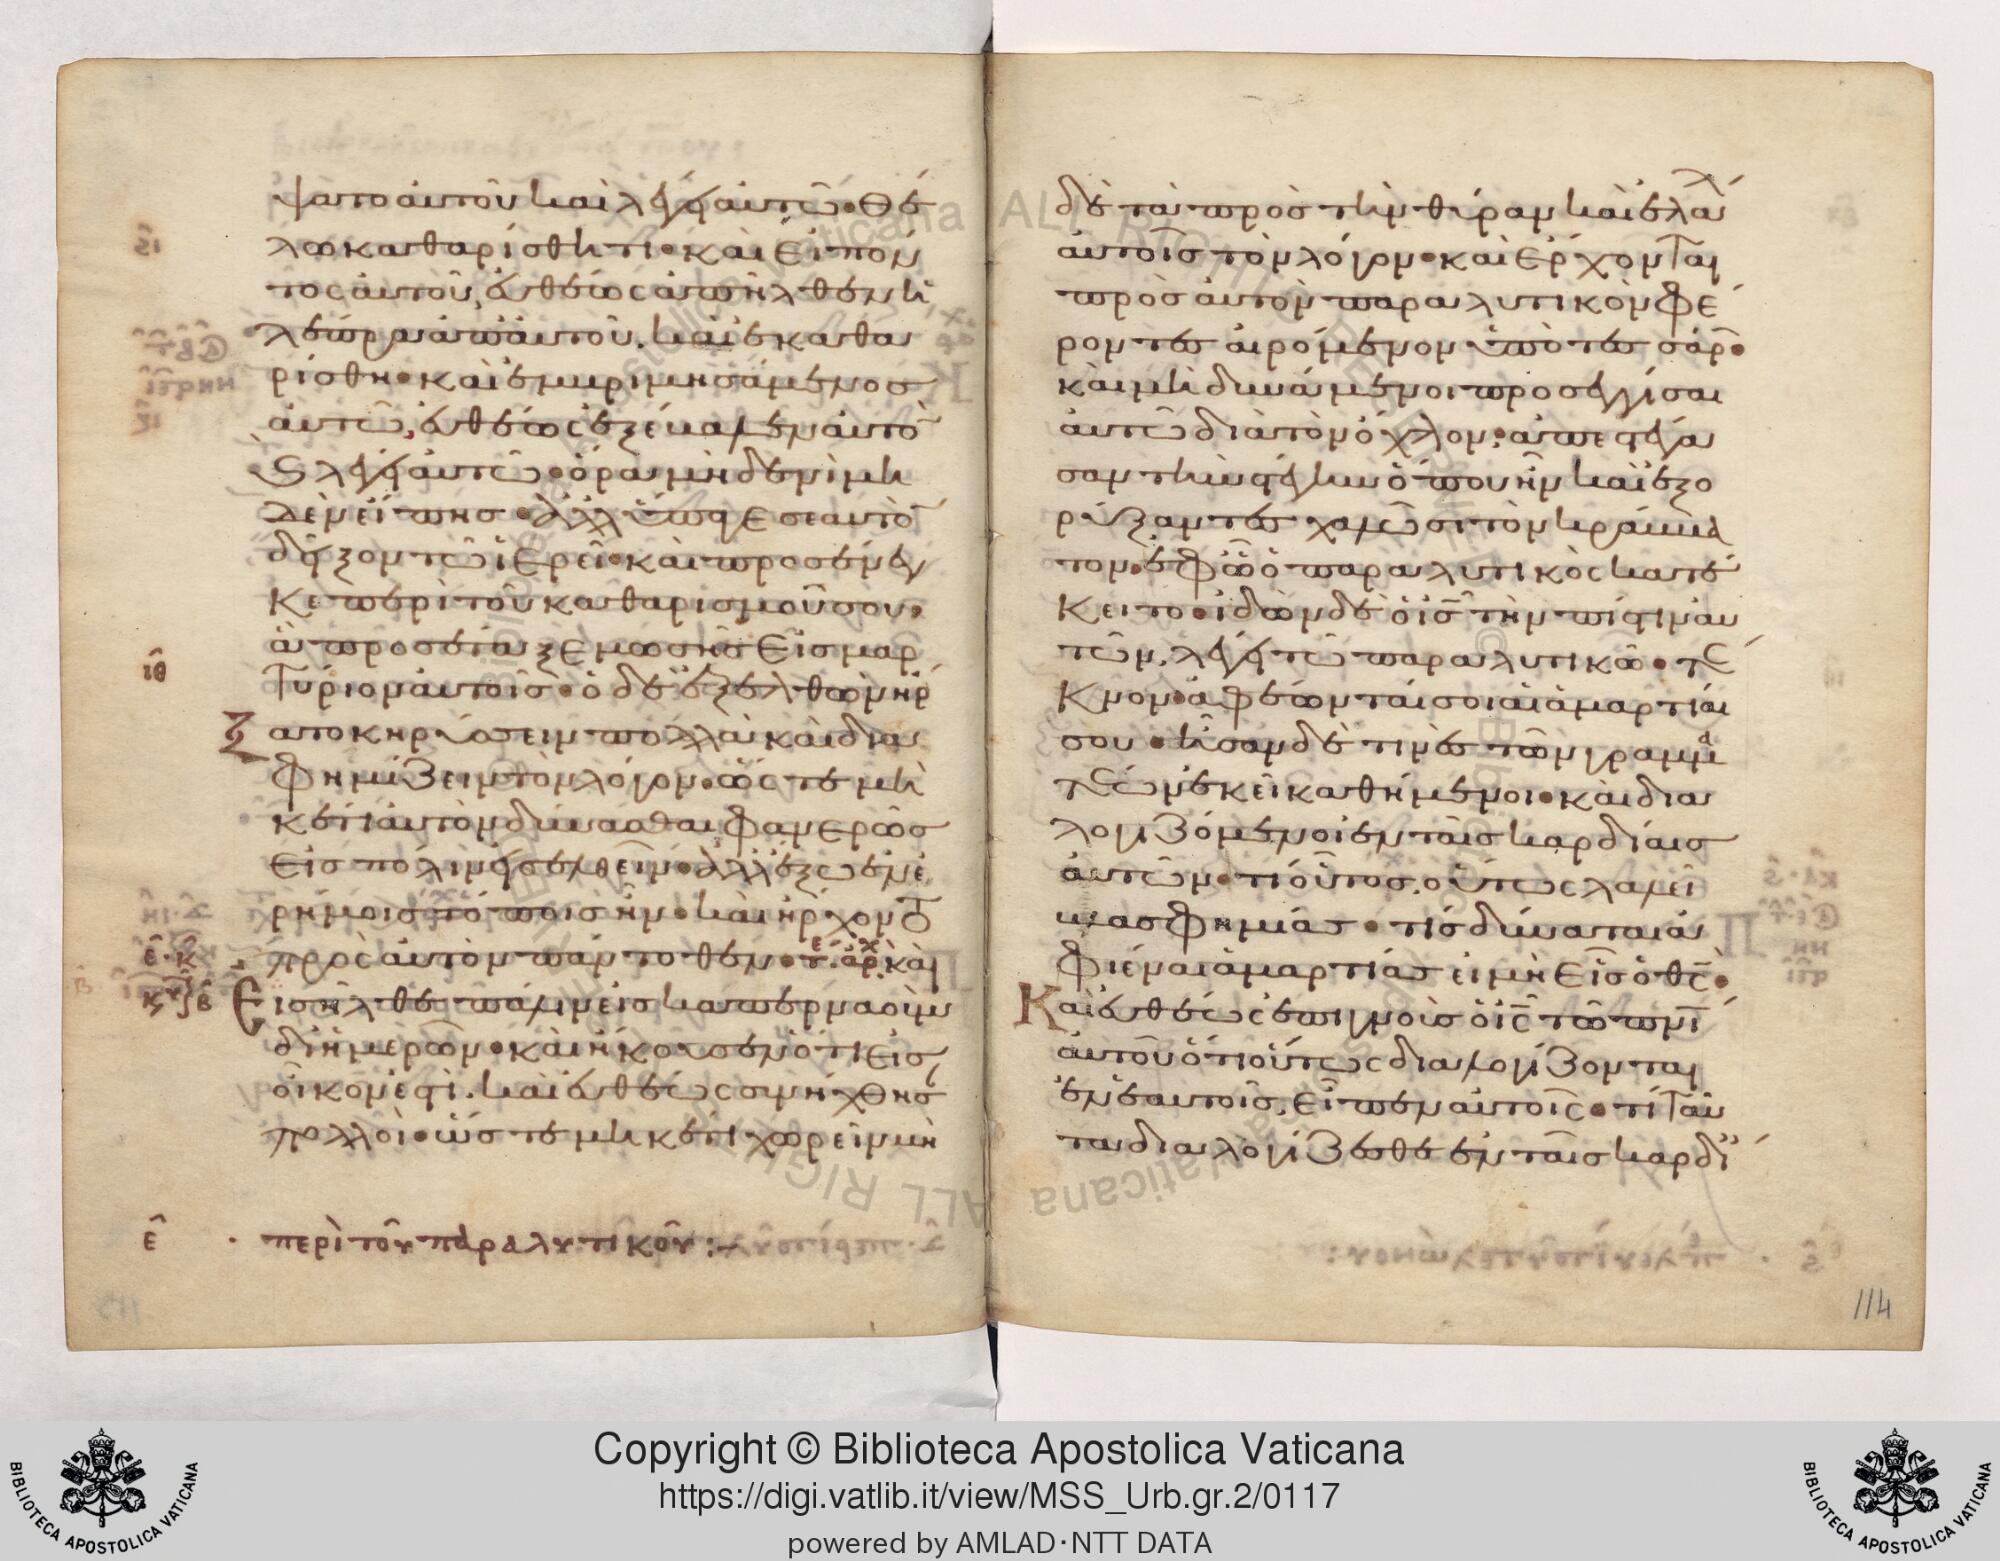 ψατο αὐτοῦ καὶ λέγει αὐτῶ· θέ
λω καθαρίσθητι· καὶ εἰπόν
τος αὐτοῦ, εὐθέως ἀπῆλθεν ἡ
λέπρα ἀπ' αὐτοῦ. καὶ ἐκαθα
ρίσθη· καὶ ἐμβριμησάμενος
αὐτῶ, εὐθέως ἐξέβαλεν αὐτὸ
ϛ λέγει αὐτῶ· ὅρα μηδενὶ μη
δὲν εἴπης· ἀλλ' ὕπαγε σεαυτὸ
δεῖξον τῶ ἱερεῖ· καὶ προσένεγ
κε περὶ τοῦ καθαρισμοῦ σου·
ἃ προσέταξε μωσῆς εἰς μαρ
τύριον αὐτοῖς· ὁ δὲ ἐξελθὼν ἤρ
ξατο κηρύσσειν πολλὰ καὶ δια
φημίζειν τὸν λόγον· ὥστε μη
κέτι αὐτὸν δύνασθαι φανερῶς
εἰς πόλιν εἰσελθεῖν· ἀλλ' ἔξω ἐν ἐ
ρήμοις τόποις ἦν· καὶ ἤρχοντ
πρὸς αὐτὸν πάντοθεν· τ. ἀρχ καὶ
Εἰσῆλθε πάλιν εἰς καπερναοὺμ
δι' ἡμερῶν· καὶ ἠκούσθη ὅτι εἰς
οἶκόν ἐστι. καὶ εὐθέως συνήχθησ
πολλοὶ· ὥστε μηκέτι χωρεῖν μὴ
ε · περὶ τοῦ παραλυτικοῦ :~
ιθ
ε̂· κ̂
δὲ τὰ πρὸς τὴν θύραν καὶ ἐλάλ
αὐτοῖς τὸν λόγον· καὶ ἔρχονται
πρὸς αὐτὸν παραλυτικὸν φέ
ροντες αἰρόμενον ὑπὸ τεσσάρ·
καὶ μὴ δυνάμενοι προσεγγίσαι
αὐτῶ διὰ τὸν ὄχλον· ἀπεστέγα
σαν τὴν στέγην ὅπου ἦν καὶ ἐξο
ρύξαντες χαλῶσι τὸν κράββα
τον· ἐφ' ὧ ὁ παραλυτικὸς κατέ
κειτο· ἰδὼν δὲ ὁ ις τὴν πίστιν αὐ
τῶν, λέγει τῶ παραλυτικῶ· τέ
κνον· ἀφέωνταί σοι αἱ ἁμαρτίαι
σου· ἦσαν δέ τινες τῶν γραμμα
τέων ἐκεῖ καθήμενοι· καὶ δια
λογιζόμενοι ἐν ταῖς καρδίαις
αὐτῶν· τί οὗτος οὕτως λαλεῖ
βλασφημίας· τίς δύναται ἀ
φιέναι ἁμαρτίας εἰ μὴ εἷς ὁ θς·
Καὶ εὐθέως ἐπιγνοὺς ὁ ις τῶ πνι
αὐτοῦ ὅτι οὕτως διαλογίζονται
ἐν ἑαυτοῖς, εἶπεν αὐτοῖς· τί ταῦ
τα διαλογίζεσθε ἐν ταῖς καρδί
114
Copyright © Biblioteca Apostolica Vaticana
https://digi.vatlib.it/view/MSS_Urb.gr.2/0117
powered by AMLAD·NTT DATA
BIBLIOTECA APOSTOLICA VATICANA
BIBLIOTECA APOSTOLICA VATICANA